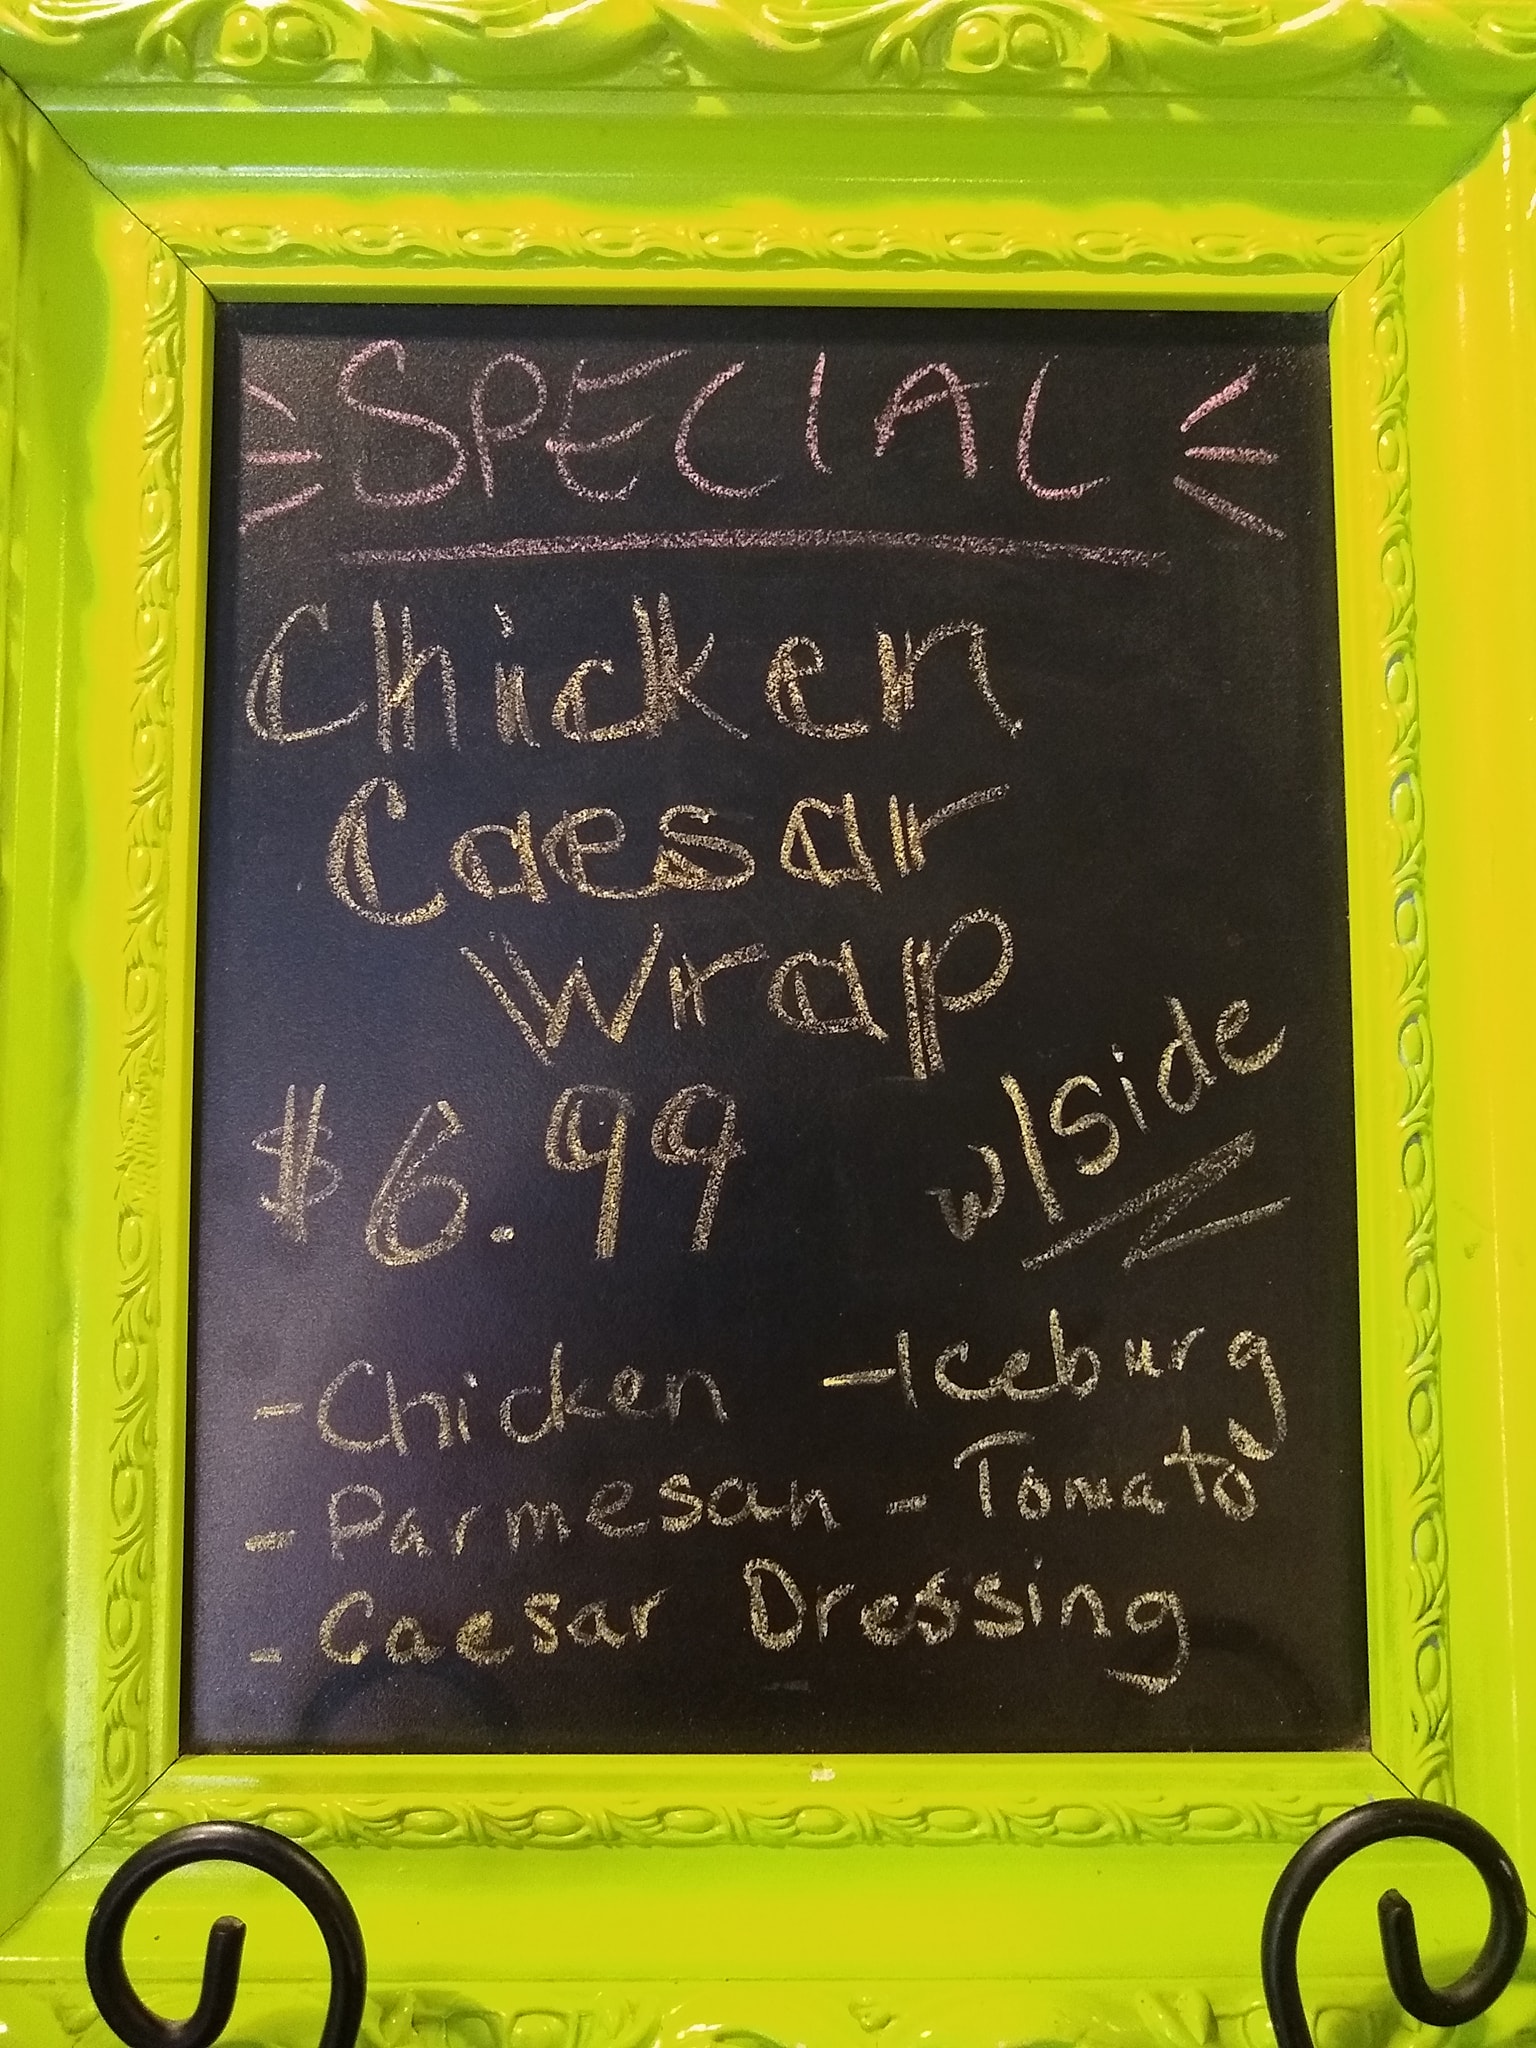 SPECIAL
Chicken
Caesar
Wrap
$6.99 w/Side
- Chicken - Iceburg
- Parmesan - Tomato
- Caesar Dressing